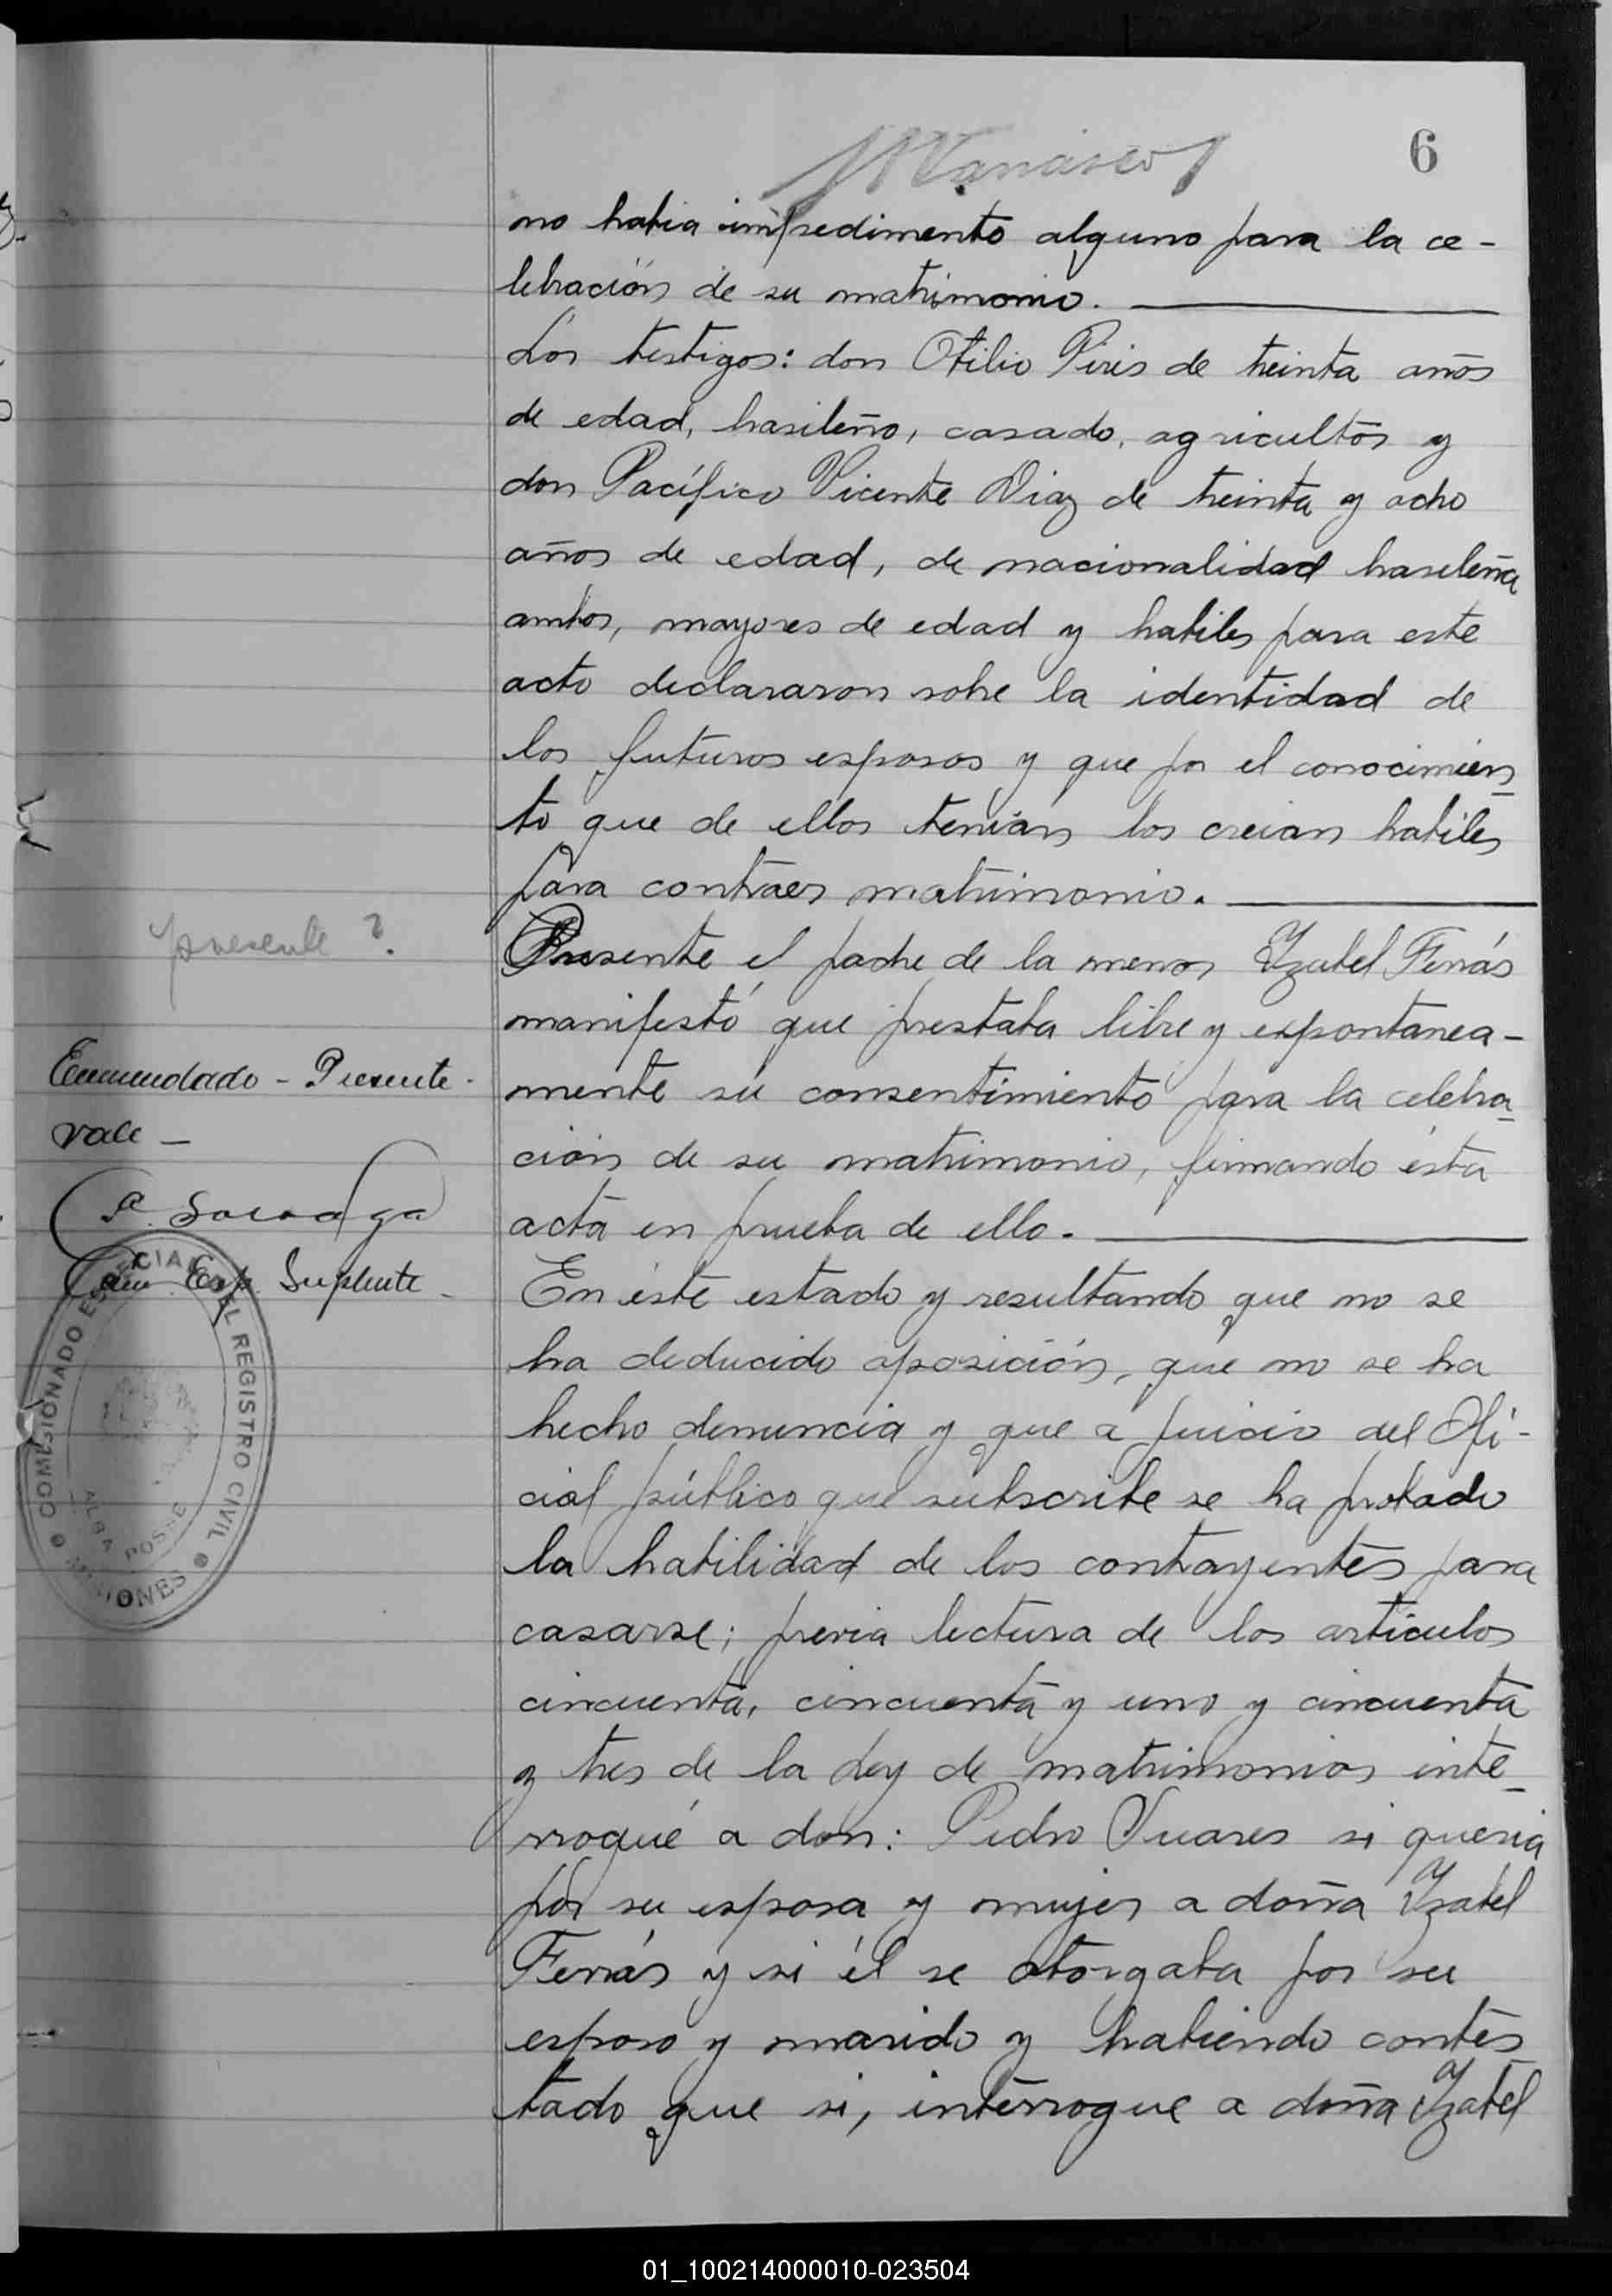 6
no habia impedimento alguno para la ce-
lebración de su matrimonio.
Los testigos: don Otilio Piris de treinta años
de edad, brasileño, casado, agricultor y
don Pacífico Vicente Diaz de treinta y ocho
años de edad, de nacionalidad brasileña
ambos, mayores de edad y habiles para este
acto declararon sobre la identidad de
los futuros esposos y que por el conocimien
to que de ellos tenian los creian habiles
para contraer matrimonio.
Presente el padre de la menor Yzabel Ferrás
manifestó que prestaba libre y espontanea-
mente su consentimiento para la celebra
ción de su matrimonio, firmando ésta
acta en prueba de ello.
En éste estado y resultando que no se
ha deducido oposición, que no se ha
hecho denuncia y que a juicio del Ofi-
cial público que subscribe se ha probado
la habilidad de los contrayentes para
casarse; previa lectura de los articulos
cincuenta, cincuenta y uno y cincuenta
y tres de la Ley de matrimonios inte
rrogué a don: Pedro Suares si queria
por su esposa y mujer a doña Yzabel
Ferrás y si él se otorgaba por su
esposo y marido y habiendo contes
tado que si, interrogue a doña Yzabel
presente ?.
Enmendado - Presente -
vale -
Com. Esp. Suplente -
COMISIONADO ESPECIAL DEL REGISTRO CIVIL
ALBA POSSE
MISIONES
01_100214000010-023504